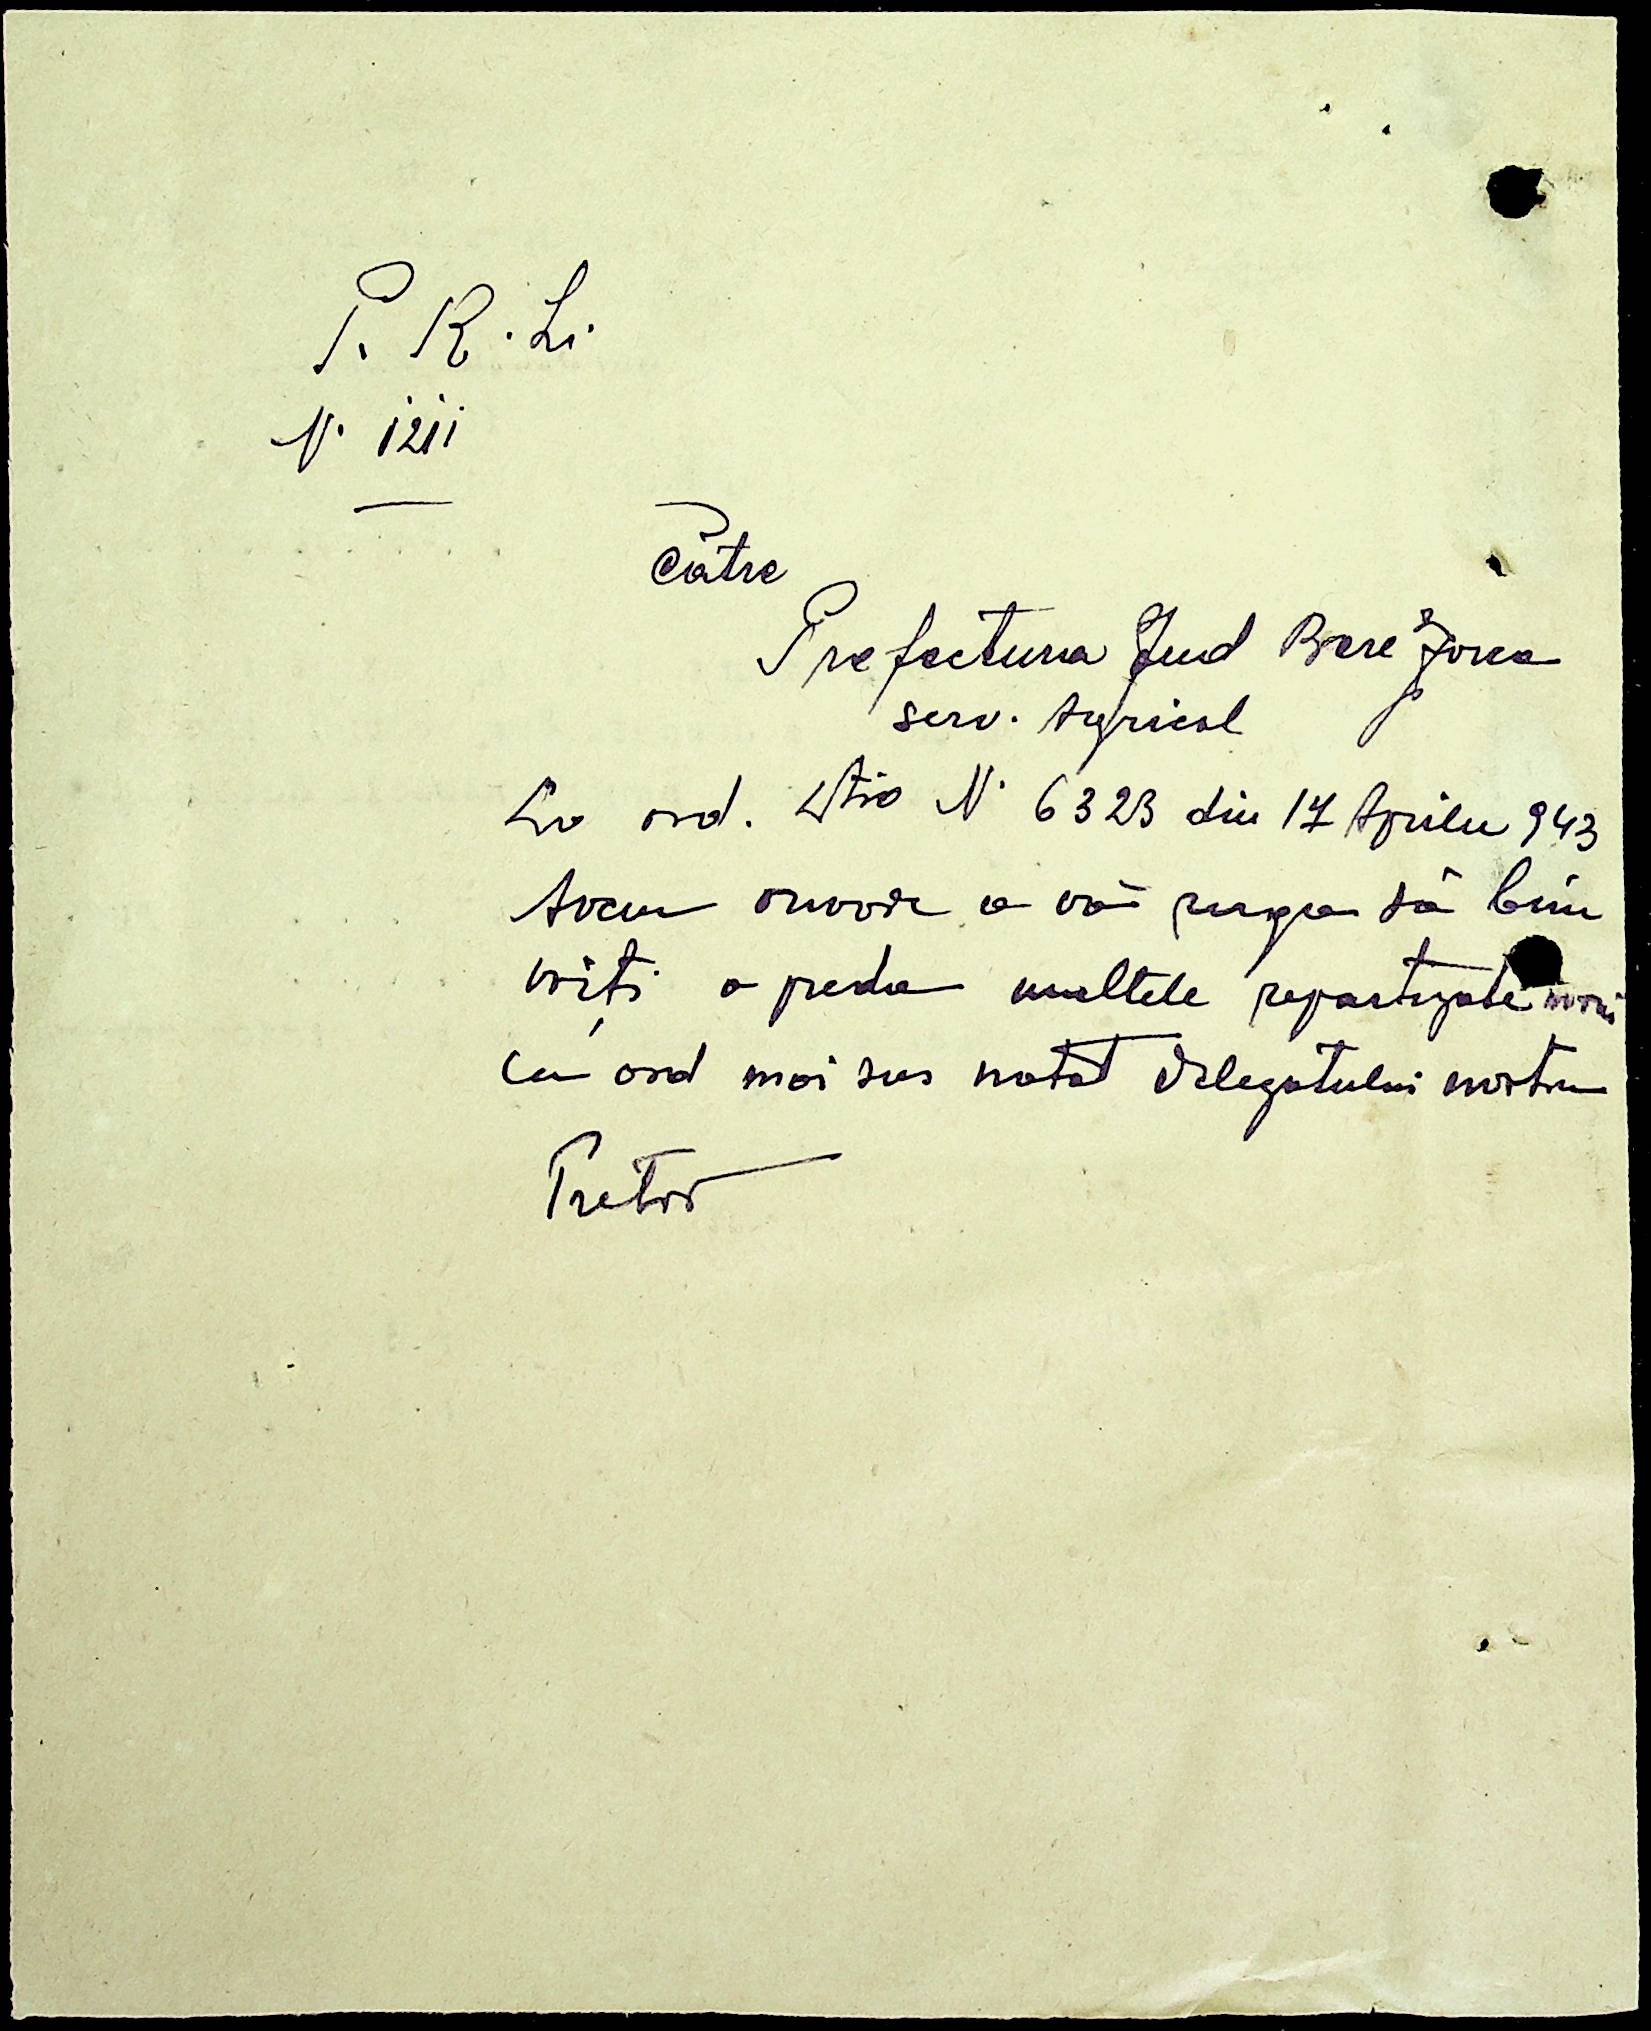 P. R. Li.
N. 1211
Către
Prefectura Jud Berezovca
serv. Agricol
La ord. Dtra N. 6323 din 17 Aprilie 943
Avem onoare a vă ruga să bine
voiți a preda uneltele repartizate nouă
cu ord mai sus notat delegatului nostru
Pretor